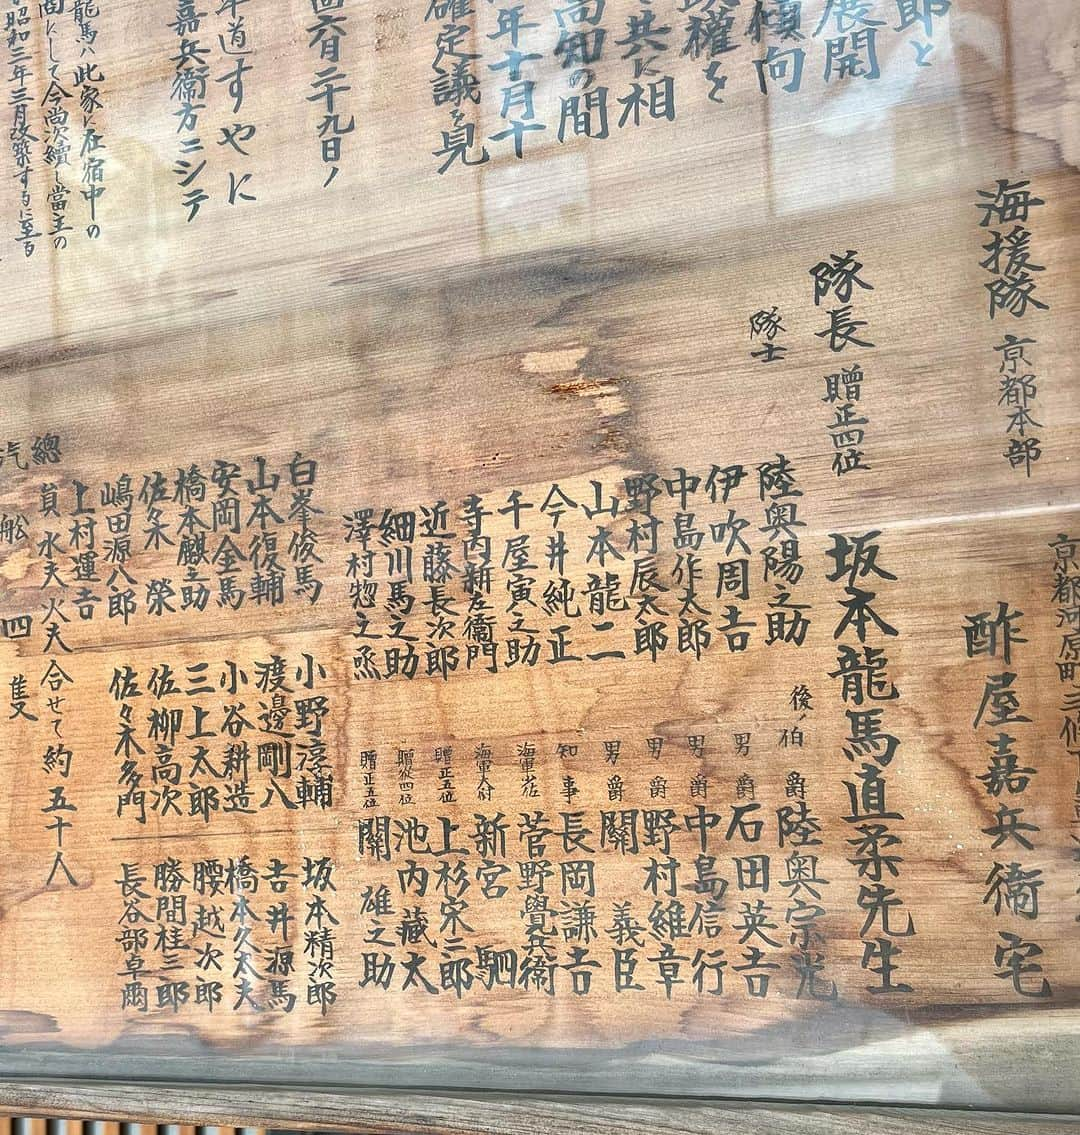 郎と
展開
傾向
政權を
共に相
高知の間
年十月十
確定議を見
六日二十九日ノ
道すやに
嘉兵衛方ニシテ
龍馬ハ此家に在宿中の
にして今尚次續し當主の
昭和二年三月改築するに至る
京都河原町三條下
海援隊 京都本部 酢屋嘉兵衛宅
隊長 贈正四位 坂本龍馬直柔先生
隊士
陸奥陽之助 後ノ伯爵 陸奥宗光
伊吹周吉 男爵 石田英吉
中島作太郎 男爵 中島信行
野村辰太郎 男爵 野村維章
山本龍二 男爵 關義臣
今井純正 知事 長岡謙吉
千屋寅之助 海軍少佐 菅野覺兵衛
寺内新左衛門 海軍大尉 新宮馴
近藤長次郎 贈正五位 上杉宋二郎
細川馬之助 贈從四位 池内藏太
澤村惣之丞 贈正五位 關雄之助
白峯俊馬 小野淳輔 坂本精次郎
山本復輔 渡邊剛八 吉井源馬
安岡金馬 小谷耕造 橋本久太夫
橋本麒之助 三上太郎 腰越次郎
佐々木榮 佐柳高次 勝間桂三郎
嶋田源八郎 佐々木多門 長谷部卓爾
上村運吉
總員水夫火夫合せて約五十人
汽船 四隻